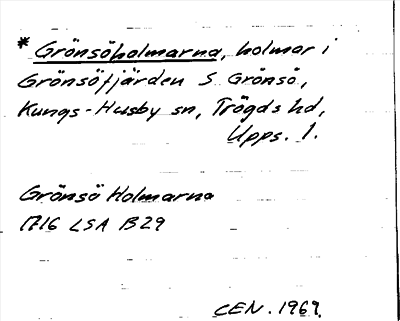 * Grönsöholmarna, holmar i
Grönsöfjärden S Grönsö,
Kungs-Husby sn, Trögds hd,
Upps. l.
Grönsö Holmarna
1716 LSA B29
CEN. 1969.